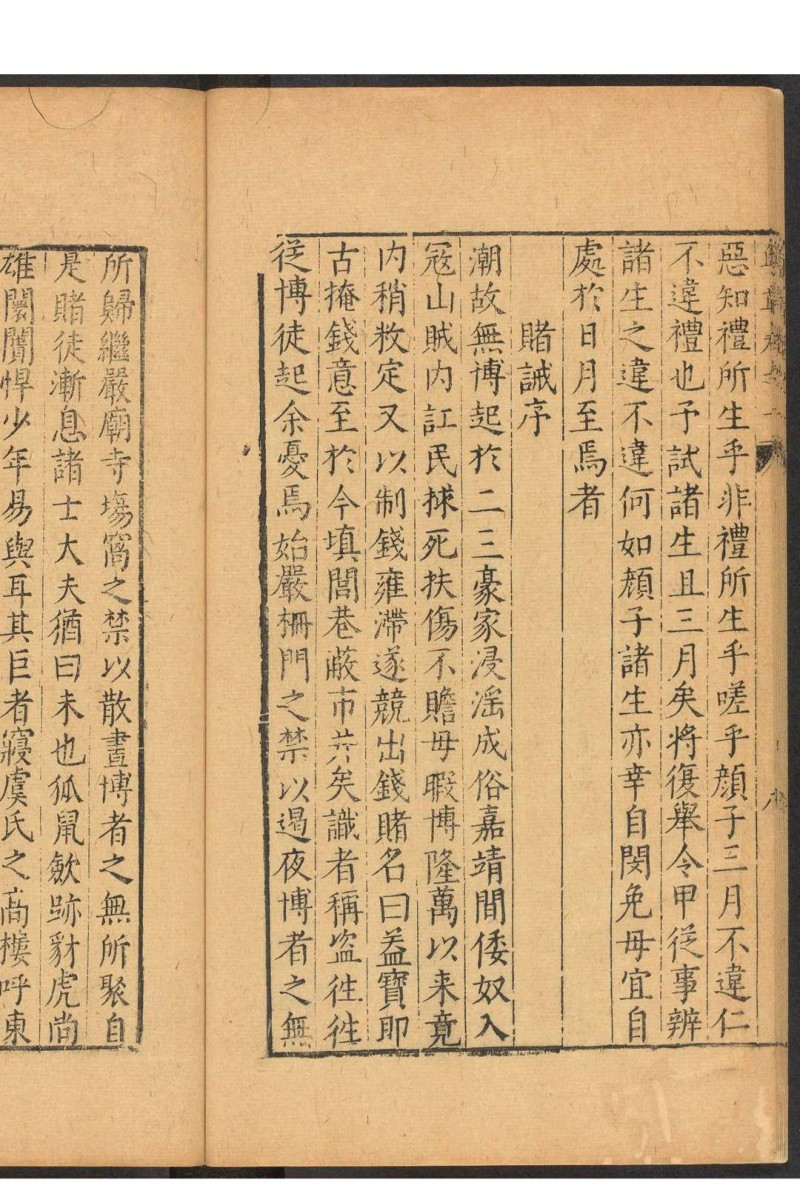 惡知禮所生乎非禮所生乎嗟乎顔子三月不違仁
不違禮也予試諸生且三月矣將復舉令甲從事辨
諸生之違不違何如顔子諸生亦幸自閔免毋宜自
處於日月至焉者
賭誡序
潮故無博起於二三豪家浸滛成俗嘉靖間倭奴入
冦山賊内訌民捄死扶傷不贍毋暇博隆萬以来竟
内稍敉定又以制錢雍滯遂競出錢賭名曰益寶即
古掩錢意至於今填閭巷蔽市井矣識者稱盗徃徃
從博徒起余憂焉始嚴柵門之禁以遏夜博者之無
所歸繼嚴廟寺塲窩之禁以散晝博者之無所聚自
是賭徒漸息諸士大夫猶曰未也狐䑕歛跡豺虎尚
雄闤闠悍少年易與耳其巨者寢虞氏之高樓呼東